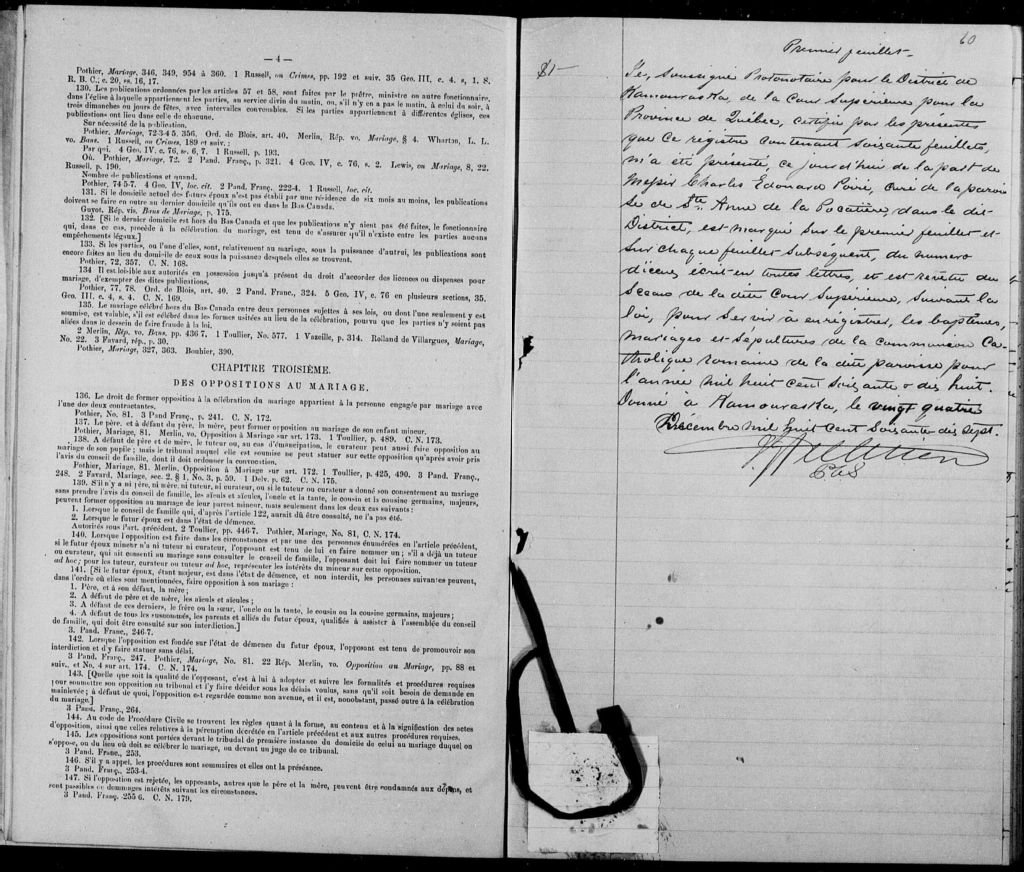 — 4 —
Pothier, Mariage, 346, 349, 954 à 360. 1 Russell, on Crimes, pp. 192 et suiv. 35 Geo. III, c. 4. s, 1. S.
R. B. C., c. 20, ss. 16, 17.
130. Les publications ordonnées par les articles 57 et 58, sont faites par le prêtre, ministre ou autre fonctionnaire,
dans l'église à laquelle appartiennent les parties, au service divin du matin, ou, s'il n'y en a pas le matin, à celui du soir, à
trois dimanches ou jours de fêtes, avec intervalles convenables. Si les parties appartiennent à différentes églises, ces
publications ont lieu dans celle de chacune.
Sur nécessité de la publication.
Pothier, Mariage, 72-3-4 5, 356. Ord. de Blois, art. 40. Merlin, Rép. vo. Mariage, § 4. Wharton, L. L.
vo. Bans. 1 Russell, on Crimes, 189 et suiv.:
Par qui. 4 Geo. IV. c. 76, ss. 6, 7. 1 Russell, p. 193.
Où. Pothier, Mariage, 72. 2 Pand. Franç., p. 321. 4 Geo. IV, c. 76, s. 2. Lewis, on Mariage, 8, 22.
Russell, p. 190.
Nombre de publications et quand.
Pothier, 74 5-7. 4 Geo. IV, loc. cit. 2 Pand. Franç. 222-4. 1 Russell, loc. cit.
131. Si le domicile actuel des futurs époux n'est pas établi par une résidence de six mois au moins, les publications
doivent se faire en outre au dernier domicile qu'ils ont eu dans le Bas-Canada.
Guyot, Rép. vis. Bans de Mariage, p. 175.
132. [Si le dernier domicile est hors du Bas-Canada et que les publications n'y aient pas été faites, le fonctionnaire
qui, dans ce cas, procède à la célébration du mariage, est tenu de s'assurer qu'il n'existe entre les parties aucuns
empêchements légaux.]
133. Si les parties, ou l'une d'elles, sont, relativement au mariage, sous la puissance d'autrui, les publications sont
encore faites au lieu du domicile de ceux sous la puissance desquels elles se trouvent.
Pothier, 72, 357. C. N. 168.
134 Il est loisible aux autorités en possession jusqu'à présent du droit d'accorder des licences ou dispenses pour
mariage, d'exempter des dites publications.
Pothier, 77, 78. Ord. de Blois, art. 40. 2 Pand. Franç., 324. 5 Geo. IV, c. 76 en plusieurs sections, 35.
Geo. III. c. 4, s. 4. C. N. 169.
135. Le mariage célébré hors du Bas-Canada entre deux personnes sujettes à ses lois, ou dont l'une seulement y est
soumise, est valable, s'il est célébré dans les formes usitées au lieu de la célébration, pourvu que les parties n'y soient pas
allées dans le dessein de faire fraude à la loi.
2 Merlin, Rép. vo. Bans, pp. 436 7. 1 Toullier, No. 577. 1 Vazeille, p. 314. Rolland de Villargues, Mariage,
No. 22. 3 Favard, rép., p. 30.
Pothier, Mariage, 327, 363. Bouhier, 390.
CHAPITRE TROISIÈME.
DES OPPOSITIONS AU MARIAGE.
136. Le droit de former opposition à la célébration du mariage appartient à la personne engagée par mariage avec
l'une des deux contractantes.
Pothier, No. 81. 3 Pand Franç., p. 241. C. N. 172.
137. Le père, et à défaut du père, la mère, peut former opposition au mariage de son enfant mineur.
Pothier, Mariage, 81. Merlin, vo. Opposition à Mariage sur art. 173. 1 Toullier, p. 489. C. N. 173.
138. A défaut de père et de mère, le tuteur, ou, au cas d'émancipation, le curateur peut aussi faire opposition au
mariage de son pupile; mais le tribunal auquel elle est soumise ne peut statuer sur cette opposition qu'après avoir pris
l'avis du conseil de famille, dont il doit ordonner la convocation.
Pothier, Mariage, 81. Merlin, Opposition à Mariage sur art. 172. 1 Toullier, p. 425, 490. 3 Pand. Franç.,
248. 2 Favard, Mariage, sec. 2. § 1, No. 3, p. 59. 1 Delv. p. 62. C. N. 175.
139. S'il n'y a ni père, ni mère, ni tuteur, ni curateur, ou si le tuteur ou curateur a donné son consentement au mariage
sans prendre l'avis du conseil de famille, les aïeuls et aïeules, l'oncle et la tante, le cousin et la cousine germains, majeurs,
peuvent former opposition au mariage de leur parent mineur, mais seulement dans les deux cas suivants:
1. Lorsque le conseil de famille qui, d'après l'article 122, aurait dû être consulté, ne l'a pas été.
2. Lorsque le futur époux est dans l'état de démence.
Autorités sous l'art. précédent. 2 Toullier, pp. 446-7. Pothier, Mariage, No. 81, C. N. 174.
140. Lorsque l'opposition est faite dans les circonstances et par une des personnes énumérées en l'article précédent,
si le futur époux mineur n'a ni tuteur ni curateur, l'opposant est tenu de lui en faire nommer un; s'il a déjà un tuteur
ou curateur, qui ait consenti au mariage sans consulter le conseil de famille, l'opposant doit lui faire nommer un tuteur
ad hoc; pour les tuteur, curateur ou tuteur ad hoc, représenter les intérêts du mineur sur cette opposition.
141. [Si le futur époux, étant majeur, est dans l'état de démence, et non interdit, les personnes suivantes peuvent,
dans l'ordre où elles sont mentionnées, faire opposition à son mariage:
1. Père, et à son défaut, la mère;
2. A défaut de père et de mère, les aïeuls et aïeules;
3. A défaut de ces derniers, le frère ou la sœur, l'oncle ou la tante, le cousin ou la cousine germains, majeurs;
4. A défaut de tous les susnommés, les parents et alliés du futur époux, qualifiés à assister à l'assemblée du conseil
de famille, qui doit être consulté sur son interdiction.]
3. Pand. Franc., 246-7.
142. Lorsque l'opposition est fondée sur l'état de démence du futur époux, l'opposant est tenu de promouvoir son
interdiction et d'y faire statuer sans délai.
3 Pand. Franç., 247. Pothier, Mariage, No. 81. 22 Rép. Merlin, vo. Opposition au Mariage, pp. 88 et
suiv., et No. 4 sur art. 174. C. N. 174.
143. [Quelle que soit la qualité de l'opposant, c'est à lui à adopter et suivre les formalités et procédures requises
pour soumettre son opposition au tribunal et l'y faire décider sous les délais voulus, sans qu'il soit besoin de demande en
mainlevée; à défaut de quoi, l'opposition est regardée comme non avenue, et il est, nonobstant, passé outre à la célébration
du mariage.]
3 Pand. Franç., 264.
144. Au code de Procédure Civile se trouvent les règles quant à la forme, au contenu et à la signification des actes
d'opposition, ainsi que celles relatives à la péremption décrétée en l'article précédent et aux autres procédures requises.
145. Les oppositions sont portées devant le tribudal de première instance du domicile de celui au mariage duquel on
s'oppose, ou du lieu où doit se célébrer le mariage, ou devant un juge de ce tribunal.
3 Pand. Franc., 253.
146. S'il y a appel, les procédures sont sommaires et elles ont la préséance.
3 Pand. Franc., 253-4.
147. Si l'opposition est rejetée, les opposants, autres que le père et la mère, peuvent être condamnés aux dépens, et
sont passibles de dommages intérêts suivant les circonstances.
3 Pand. Franç. 255 6. C. N. 179.
60
Premier feuillet.
$1—
Je, soussigné Protonotaire pour le District de
Kamouraska, de la Cour Supérieure pour la
Province de Québec, certifie par les présentes
que ce régistre contenant soixante feuillets,
m'a été présenté, ce jourd'hui de la part de
Messir Charles Edouard Poiré, curé de la parois
se de Ste Anne de la Pocatière, dans le dit
District, est marqué sur le premier feuillet et
sur chaque feuillet subséquent, du numéro
d'icenx, écrit en toutes lettres, et est revêtu du
Sceau de la dite Cour Supérieure, suivant la
loi, pour servir à enrégistrer, les baptêmes,
mariages et sépultures de la communion Ca-
tholique romaine de la dite paroisse pour
l'année mil huit cent soixante & dix huit.
Donné à Kamouraska, le vingt quatre
Décembre mil huit cent soixante dix sept.